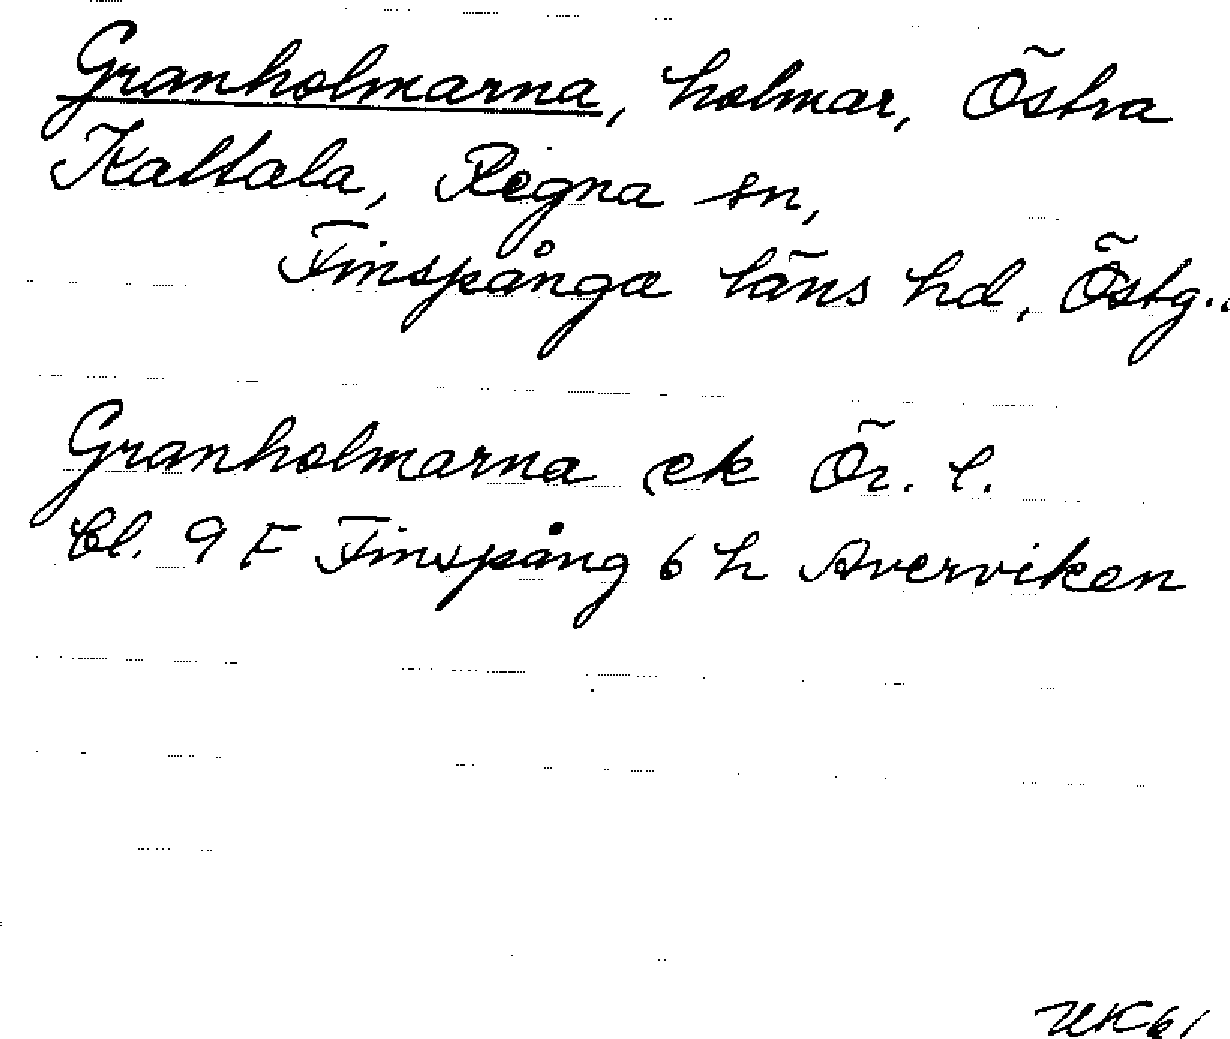 Granholmarna, holmar, Östra
Kaltala, Regna sn,
Finspånga läns hd, Östg..
Granholmarna ek Ör. l.
Bl. 9 F Finspång 6 h Averviken